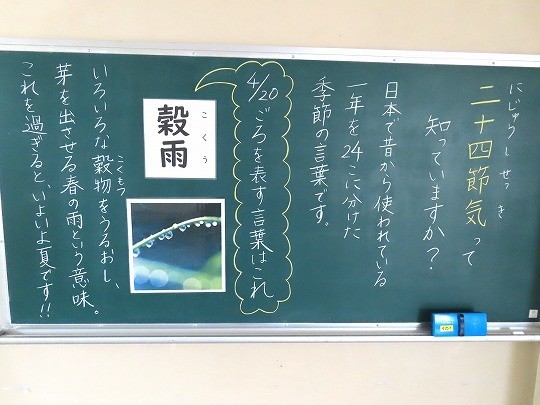 にじゅうしせっき
二十四節気って
知っていますか?
日本で昔から使われている
一年を24こに分けた
季節の言葉です。
4/20ごろを表す言葉はこれ
こくう
穀雨
こくもつ
いろいろな穀物をうるおし、
芽を出させる春の雨という意味。
これを過ぎると、いよいよ夏です!!